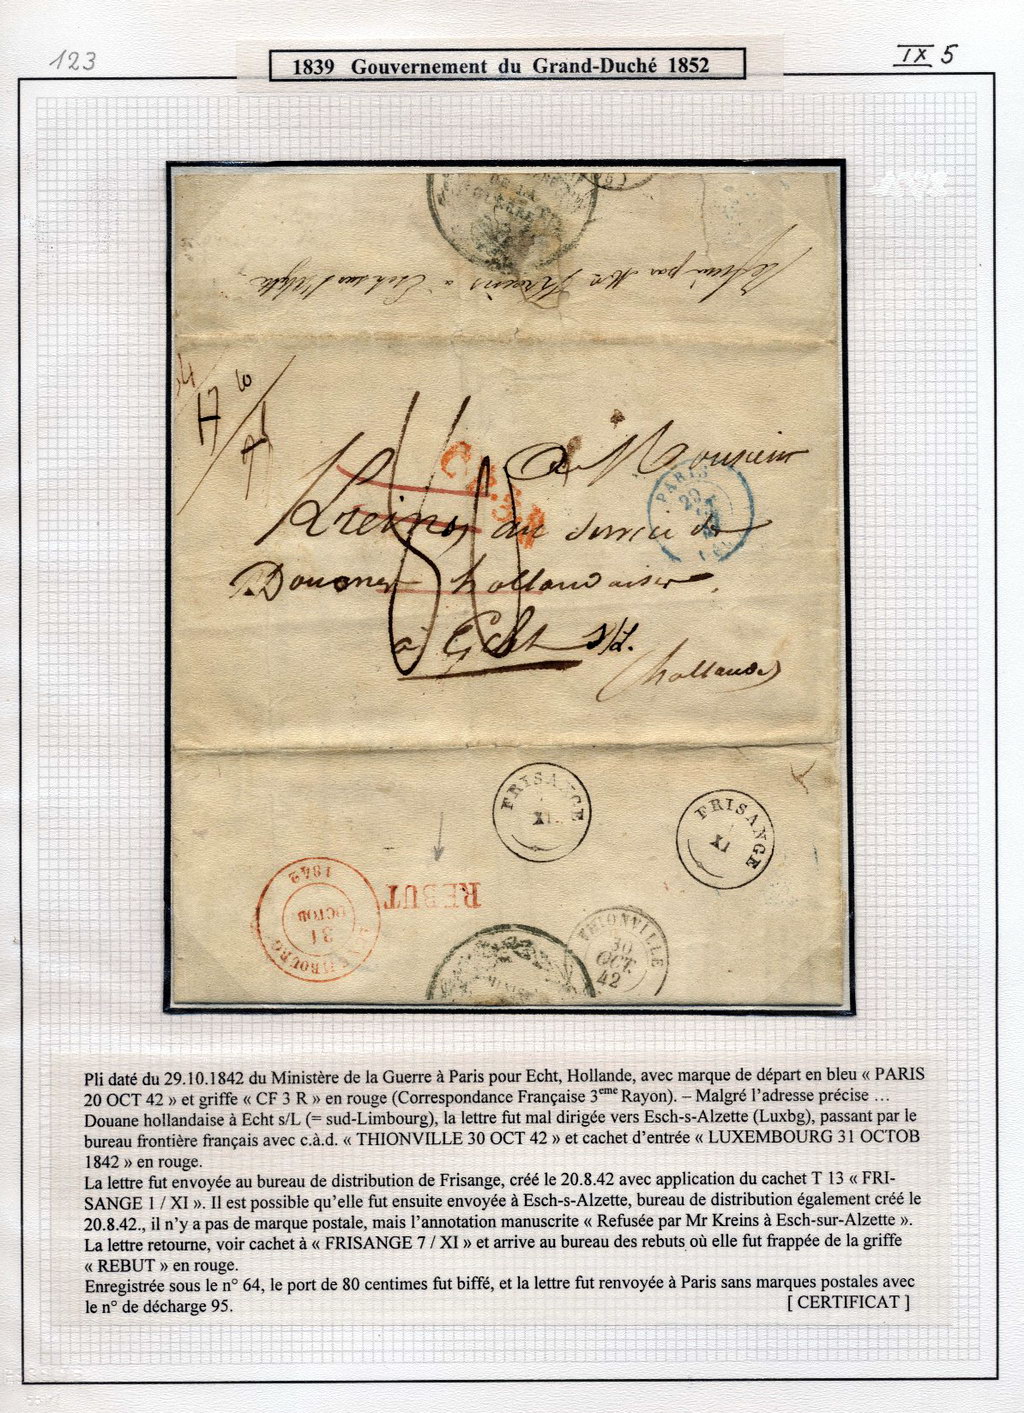 123
IX 5
1839 Gouvernement du Grand-Duché 1852
DE LA
GUERRE
Refusée par Mr Kreins à Esch sur l'Alzette
C.F.3.R.
à Monsieur
PARIS
Kreins, au service de
Douanes hollandaises,
à Echt s/L.
(hollande)
FRISANGE
XI
FRISANGE
XI
1842
OCTOB
31
LUXEMBOURG
REBUT
THIONVILLE
30
OCT.
42
Pli daté du 29.10.1842 du Ministère de la Guerre à Paris pour Echt, Hollande, avec marque de départ en bleu « PARIS
20 OCT 42 » et griffe « CF 3 R » en rouge (Correspondance Française 3eme Rayon). – Malgré l'adresse précise …
Douane hollandaise à Echt s/L (= sud-Limbourg), la lettre fut mal dirigée vers Esch-s-Alzette (Luxbg), passant par le
bureau frontière français avec c.à.d. « THIONVILLE 30 OCT 42 » et cachet d'entrée « LUXEMBOURG 31 OCTOB
1842 » en rouge.
La lettre fut envoyée au bureau de distribution de Frisange, créé le 20.8.42 avec application du cachet T 13 « FRI-
SANGE 1 / XI ». Il est possible qu'elle fut ensuite envoyée à Esch-s-Alzette, bureau de distribution également créé le
20.8.42., il n'y a pas de marque postale, mais l'annotation manuscrite « Refusée par Mr Kreins à Esch-sur-Alzette ».
La lettre retourne, voir cachet à « FRISANGE 7 / XI » et arrive au bureau des rebuts où elle fut frappée de la griffe
« REBUT » en rouge.
Enregistrée sous le n° 64, le port de 80 centimes fut biffé, et la lettre fut renvoyée à Paris sans marques postales avec
le n° de décharge 95. [ CERTIFICAT ]